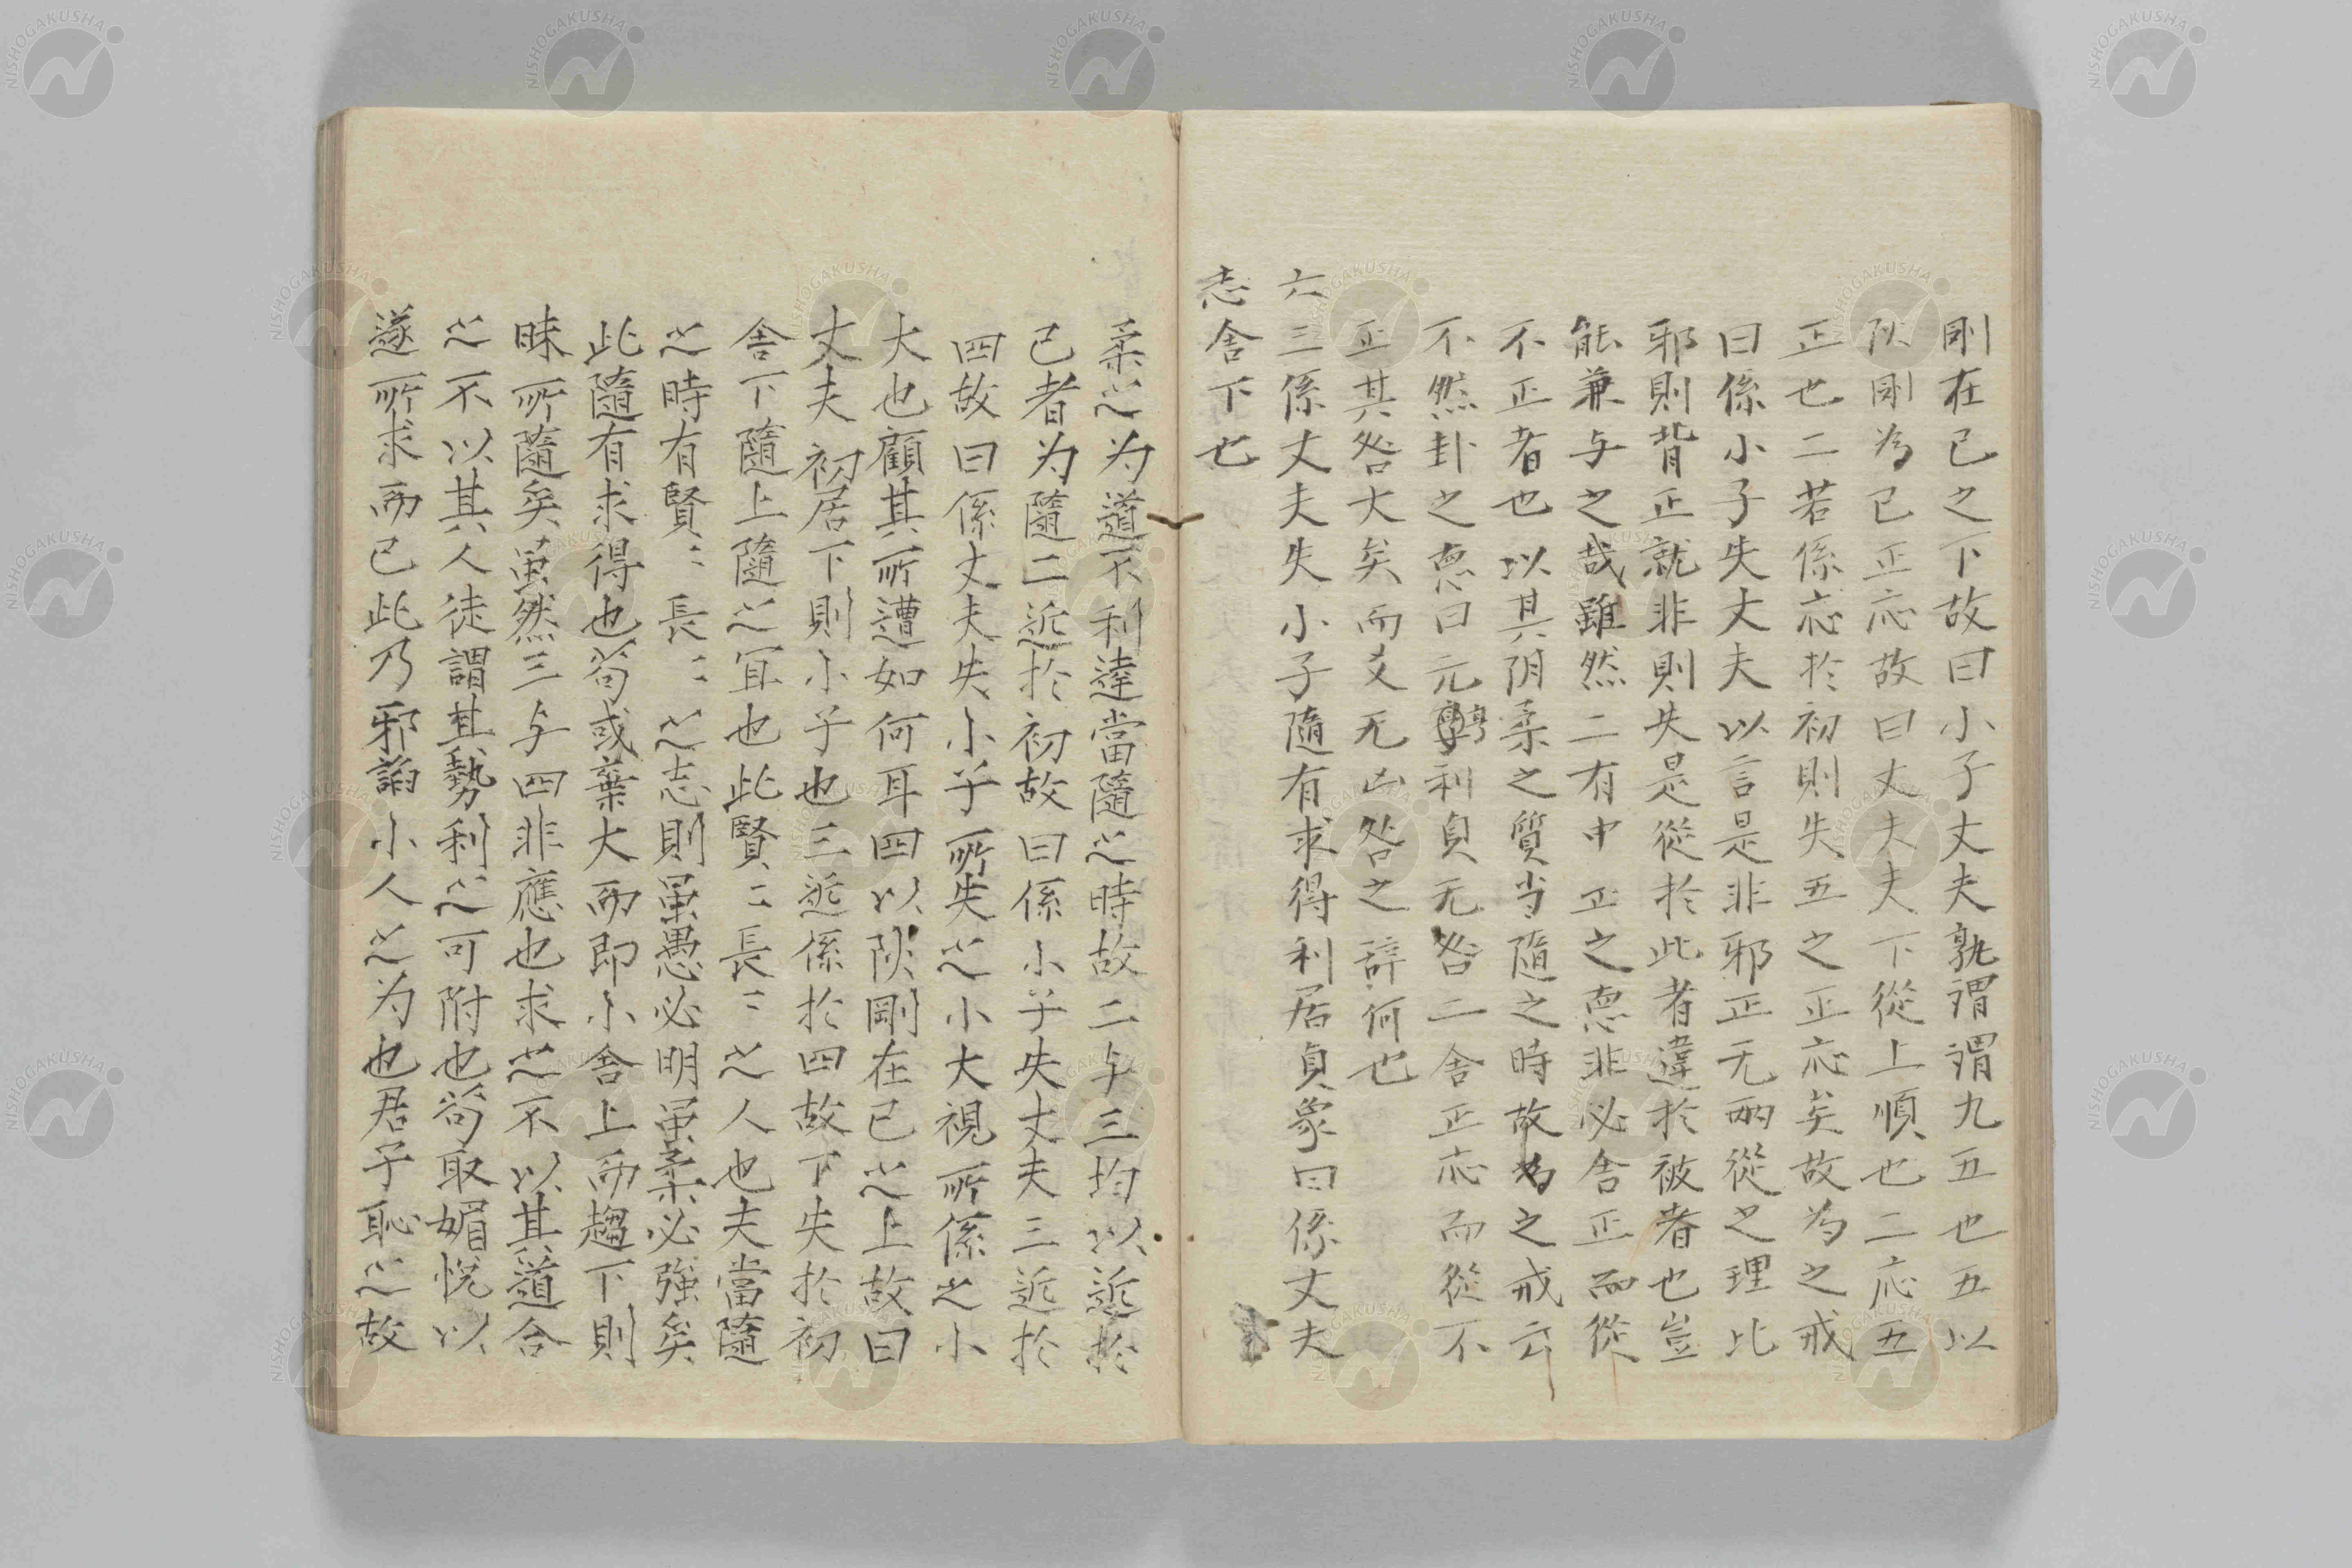 剛在已之下故曰小子丈夫孰謂謂九五也五以
陜剛為已正応故曰丈夫夫下從上順也二応五
正也二若係応於初則失五之正応矣故為之戒
曰係小子失丈夫以言是非邪正无兩從之理比
邪則背正就非則失是從於此者違於被者也豈
能兼与之哉雖然二有中正之悳非必舎正而從
不正者也以其阴柔之質当隨之時故為之戒云
不然卦之悳曰元亨利貞无咎二舎正応而從不
正其咎大矣而爻无凶咎之辞何也
六三係丈夫失小子隨有求得利居貞象曰係丈夫
志舎下也
柔之为道不利逹當隨之時故二与三均以近於
已者为隨二近於初故曰係小子失丈夫三近於
四故曰係丈夫失小子所失之小大視所係之小
大也顧其所遭如何耳四以陜剛在已之上故曰
丈夫初居下則小子也三近係於四故下失於初
舎下隨上隨之冝也此賢〻長〻之人也夫當隨
之時有賢〻長〻之志則虽愚必明虽柔必強矣
此隨有求得也苟或棄大而即小舎上而趨下則
昧所隨矣虽然三与四非應也求之不以其道合
之不以其人徒謂其勢利之可附也苟取媚悦以
遂所求而已此乃邪諂小人之为也君子恥之故